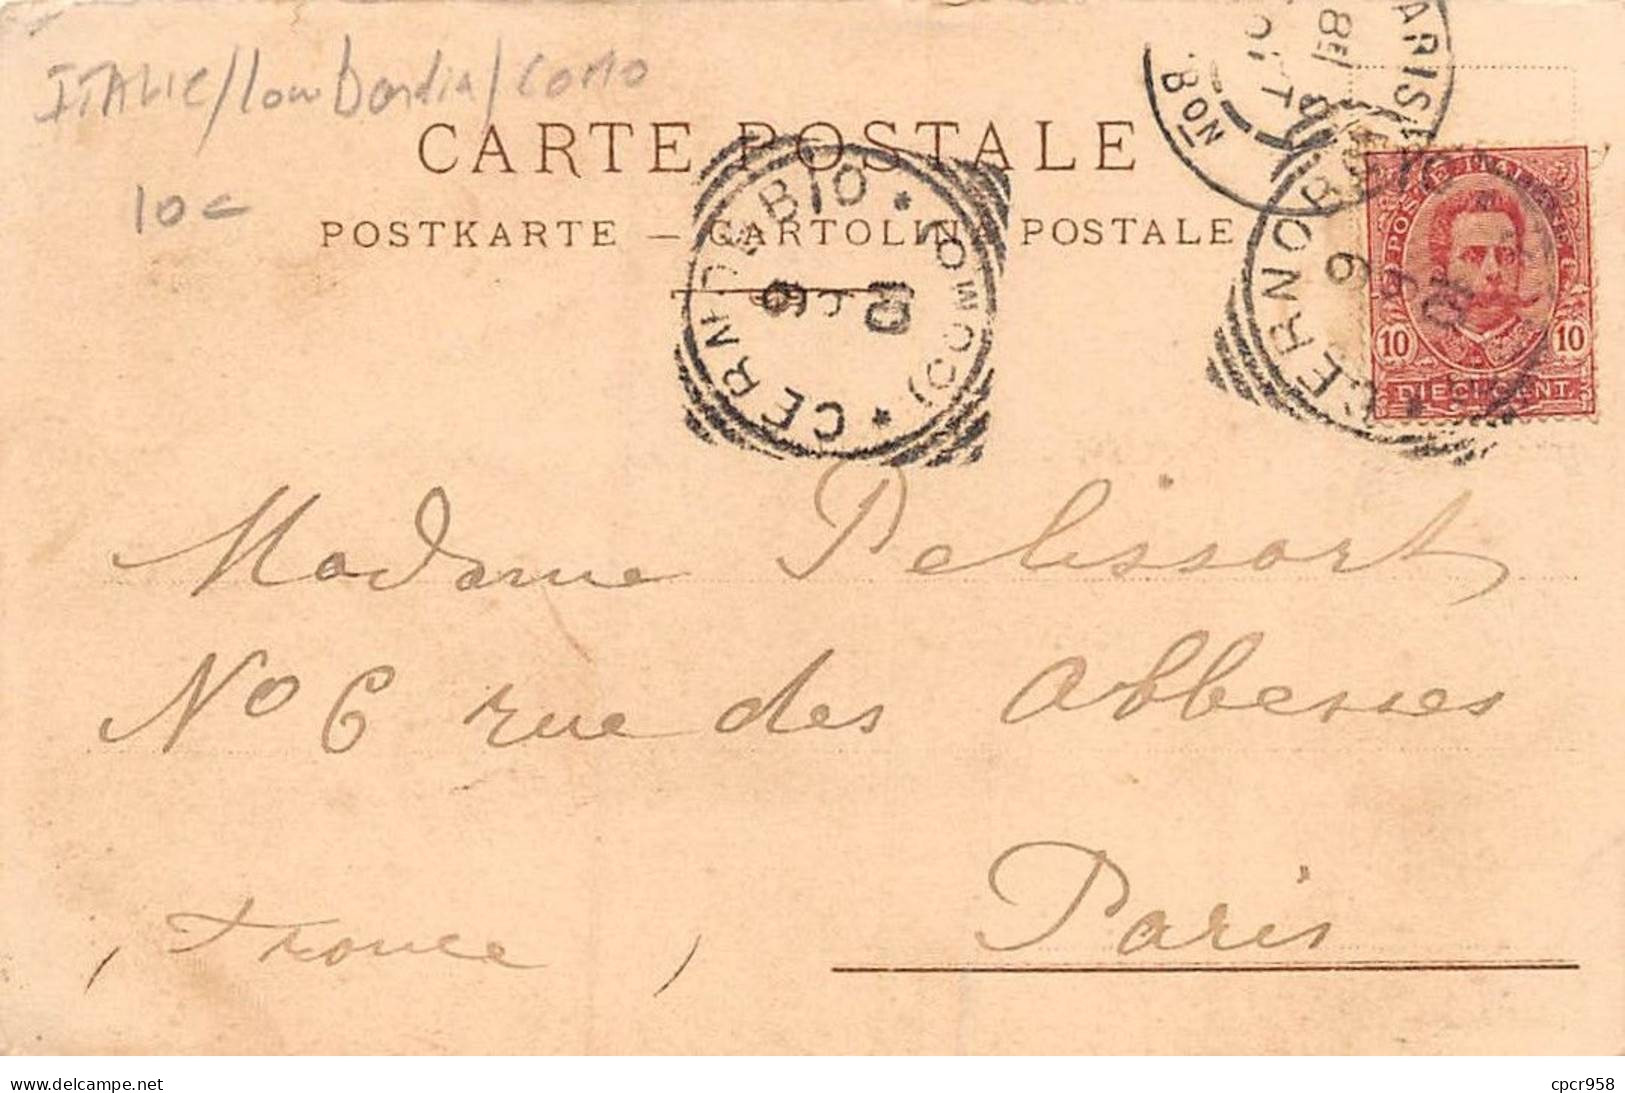 ITALIE/lombardia/como
10 c
CARTE POSTALE
POSTKARTE — CARTOLINA POSTALE
CERNOBBIO * (COMO) *
CERNOBBIO
PARIS
POSTE
10 10
DIECI CENT.
Madame Pelissart
No 6 rue des Abbesses
Paris
(France)
Delcampe.net
cpcr958